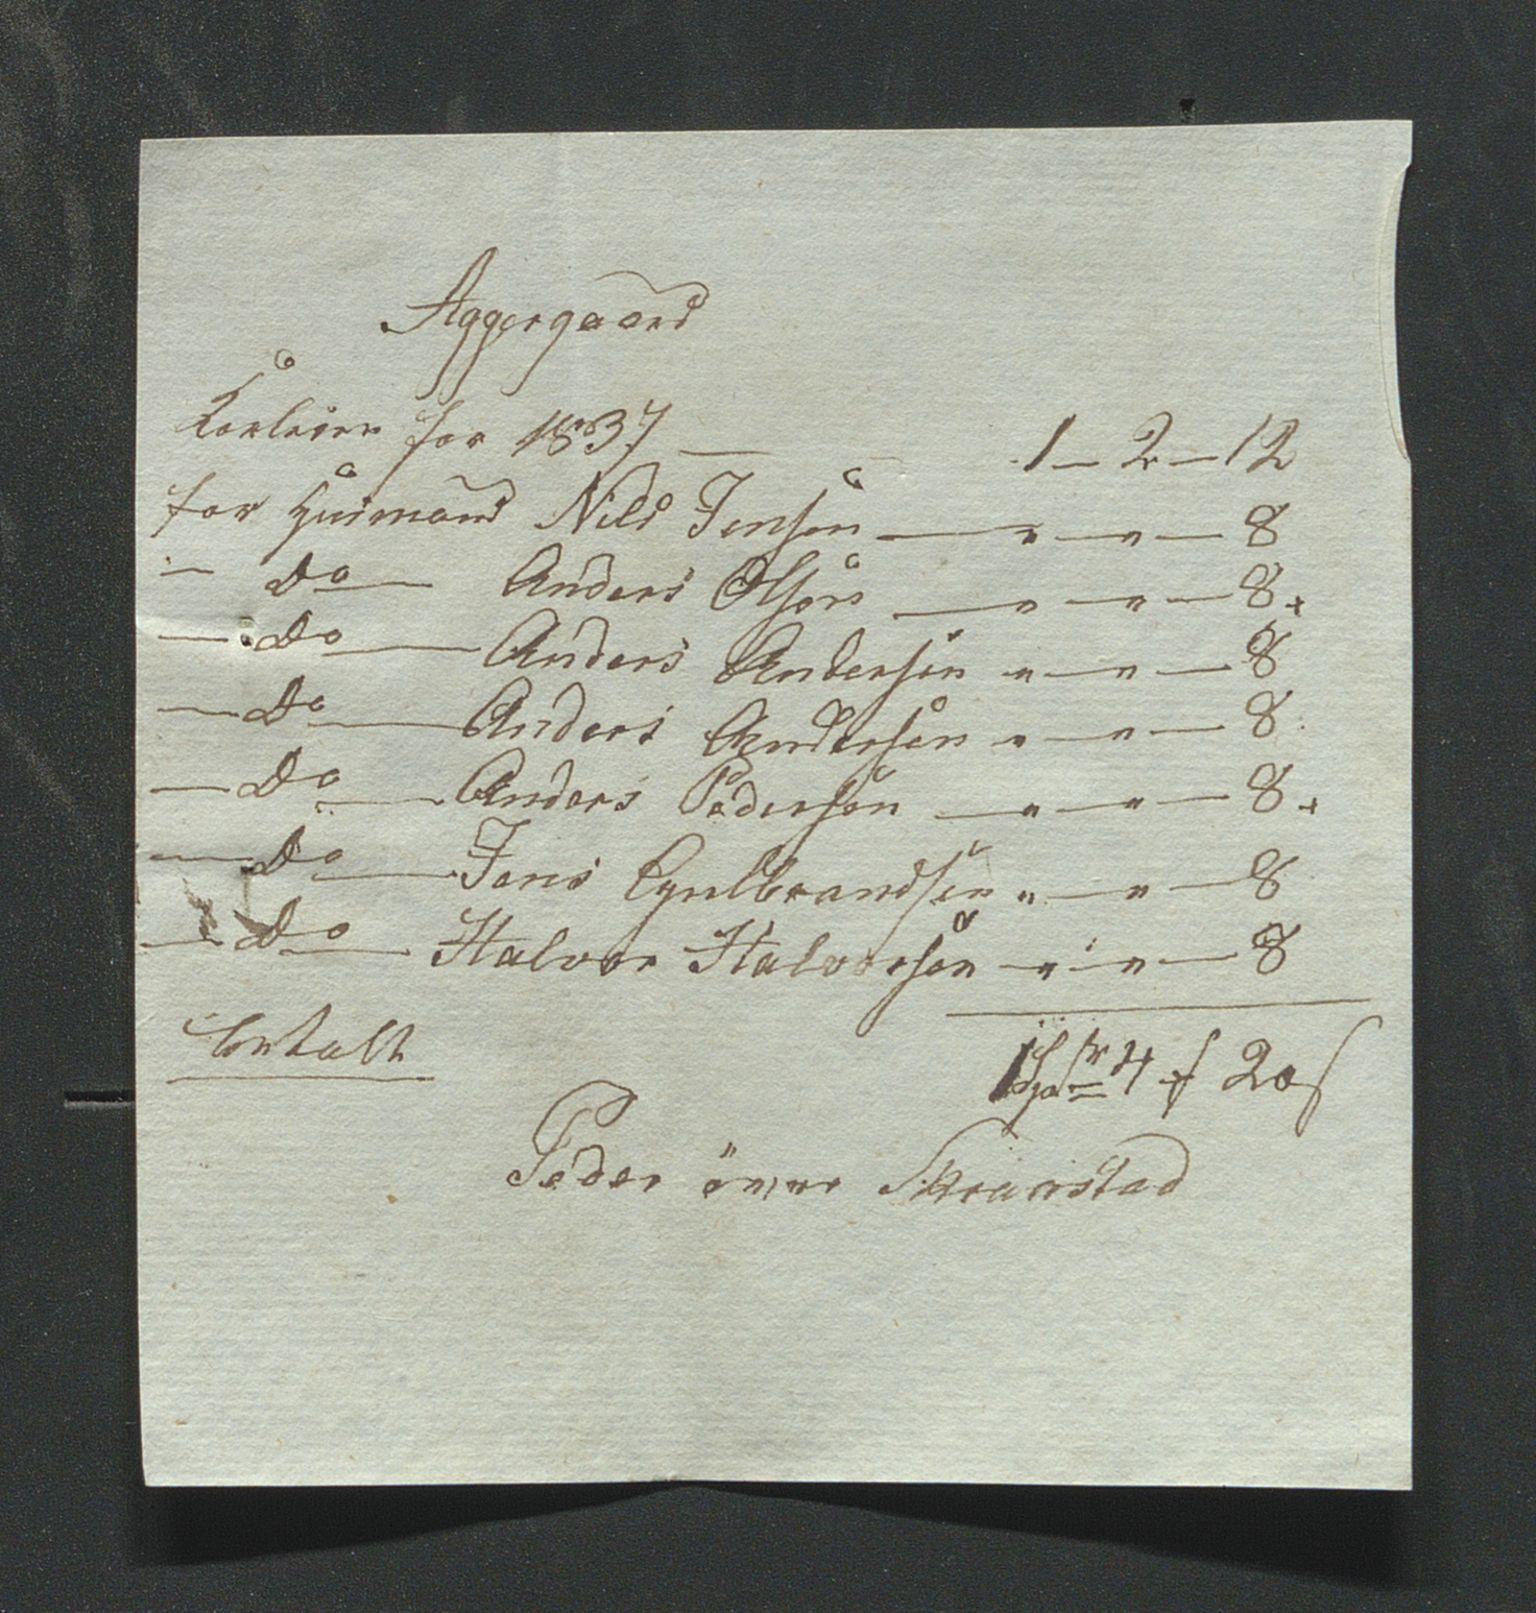 Aggergaard
for 1837 — 1 — 2 — 12
for Huusmand Nils Jensen — " — " — 8
— Do — Anders Olsen — " — " — 8 +
— Do — Anders Andersen " — " — 8
— Do — Anders Andersen " — " — 8
— Do — Anders Pedersen — " — " — 8 +
— Do — Jens Engelbrandsen " — " — 8
— Do — Halvor Halvorsen — " — " — 8
betalt
4 20
Peder övre Skraastad